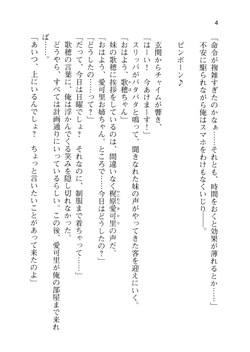 4
「命令が複雑すぎたのかなぁ……それとも、時間をおくと効果が薄れるとか……」
不安に駆られながら俺はスマホをわけもなくいじり――。
ピンポーン♪
玄関からチャイムが響き、
「はーい！　今あけまーす！」
スリッパがパタパタと鳴って、聞きなれた妹の声がやってきた客を迎えにいく。
「おはよう、歌穂ちゃん」
「おはよう、愛可里お姉ちゃん。ところで……今日はどうしたの？」
妹の歌穂に挨拶をしているのは、間違いなく梶原愛可里の声だ。
「どうしたの……って？」
「だって、今日は日曜でしょ？　それなのに、制服まで着ちゃって……」
歌穂の言葉に、俺は浮かんでくる笑みを隠しきれなかった。
どうやら、すべては計画通りにいっているらしい。この後、愛可里が俺の部屋まで来れ
ば……。
「あいつ、上にいるんでしょ？　ちょっと言いたいことがあって来たのよ」